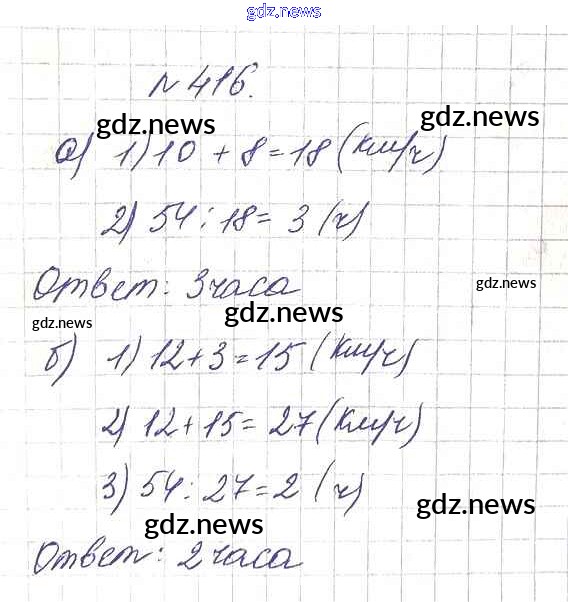 gdz.news
№ 416.
gdz.news
gdz.news
а) 1) 10 + 8 = 18 (км/ч)
2) 54 : 18 = 3 (ч)
Ответ: 3 часа
gdz.news
gdz.news
gdz.news
б) 1) 12 + 3 = 15 (км/ч)
2) 12 + 15 = 27 (км/ч)
3) 54 : 27 = 2 (ч)
gdz.news
gdz.news
Ответ: 2 часа